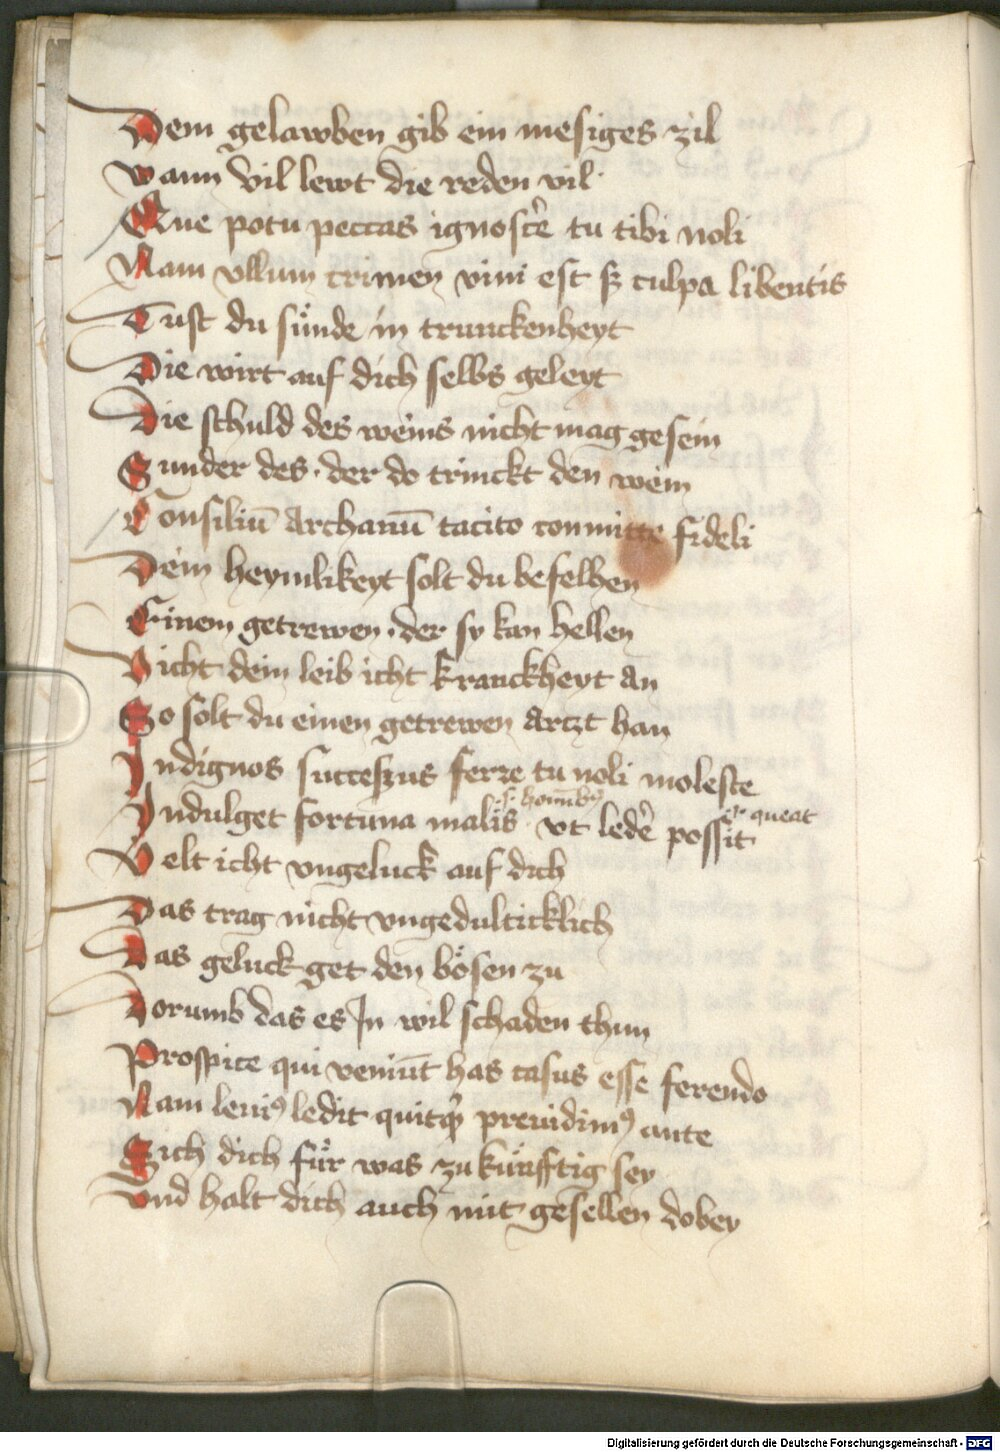 Dem gelawben gib ein mesiges zil
wann vil lewt die reden vil
Que potu peccas ignosc̄e tu tibi noli
Nam vllum crimen vini est sʒ culpa libentis
Tust du sünde in trunckenheyt
Die wirt auf dich selbs geleyt
Die schuld des weins nicht mag gesein
Sunder des · der do trinckt den wein
Consiliū Archanū tacito committe fideli
Dein heymlikeyt solt du befelhen
Einem getrewen · der sy kan hellen
Vicht dein leib icht kranckheyt an
So solt du einen getrewen artzt han
Indignos succeszus ferre tu noli moleste
.s. homībꝰ
Indulget fortuna malis · vt led̄e possit
queat
Velt icht vngeluck auf dich
Das trag nicht vngedulticklich
Das geluck get den bösen zu
Dorumb das es In wil schaden thun
Prospice qui veniūt has casus esse ferendo
Nam leuiꝰ ledit quitqͥd preuidimꝰ ante
Sich dich für was zu künfftig sey
vnd halt dich auch mit gesellen dobey
Digitalisierung gefördert durch die Deutsche Forschungsgemeinschaft - DFG